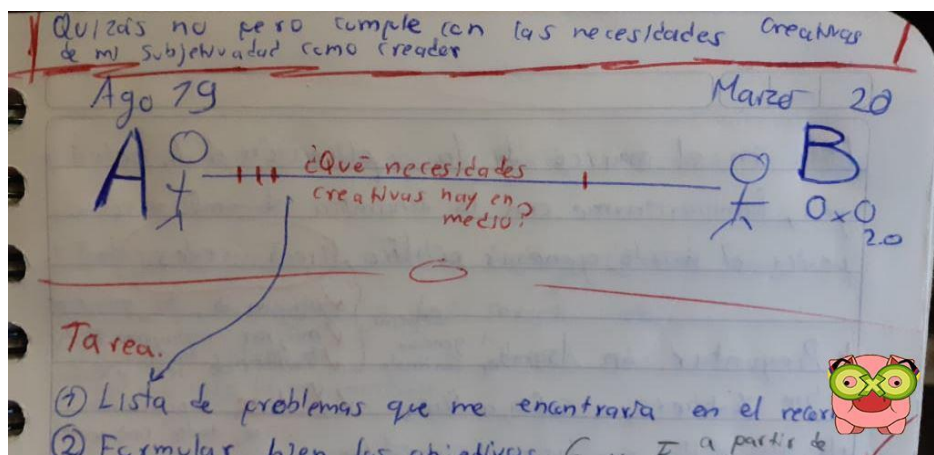 Quizás no pero cumple con las necesidades creativas
de mi subjetividad como creador
Ago 19
Marzo 20
A
¿Qué necesidades
creativas hay en
medio?
B
OxO
2.0
Tarea.
① Lista de problemas que me encontraria en el recor
② Formular bien los objetivos G y E a partir de